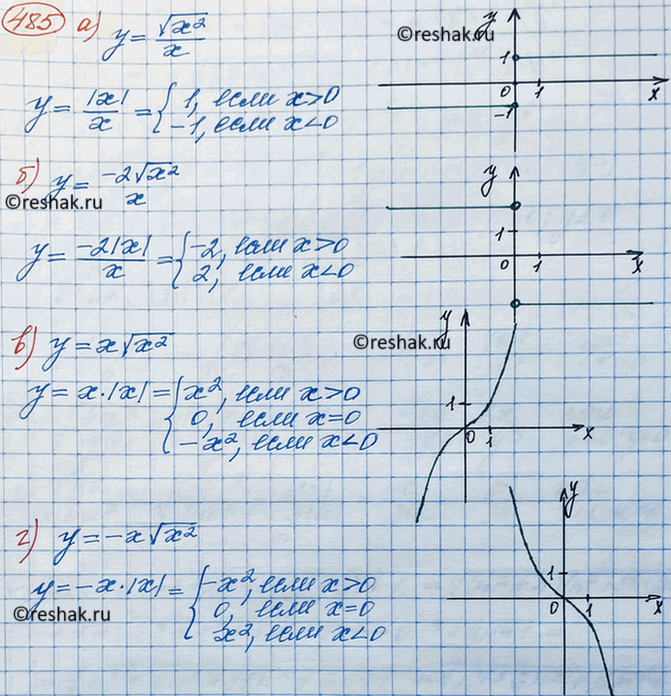 485 а) y = √x² / x
©reshak.ru
y = |x| / x = { 1, если x>0
-1, если x<0
y 1 0 1 x -1
б) y = -2√x² / x
©reshak.ru
y = -2|x| / x = { -2, если x>0
2, если x<0
y 1 0 1 x
в) y = x√x²
©reshak.ru
y = x·|x| = { x², если x>0
0, если x=0
-x², если x<0
y 1 0 1 x
г) y = -x√x²
y = -x·|x| = { -x², если x>0
0, если x=0
x², если x<0
©reshak.ru
y 1 0 1 x